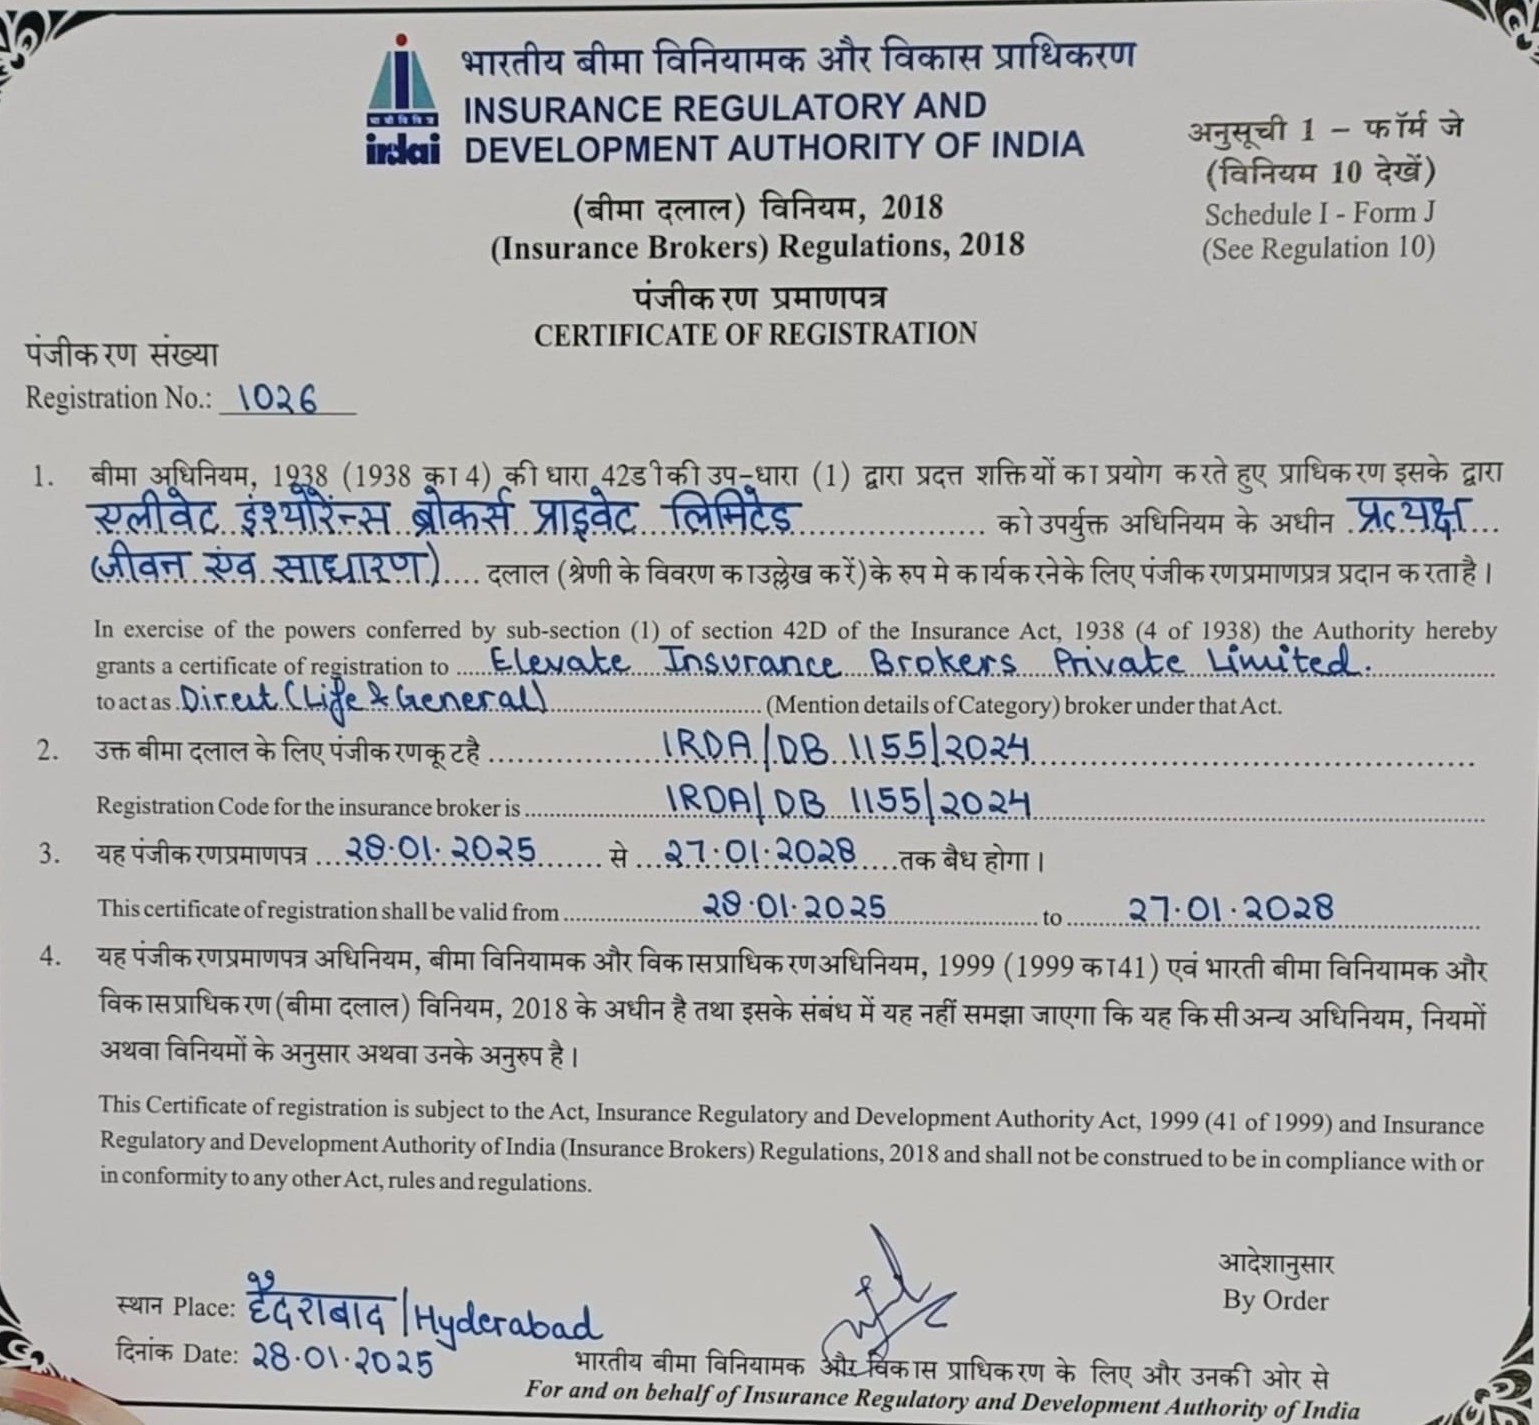 भारतीय बीमा विनियामक और विकास प्राधिकरण
INSURANCE REGULATORY AND
DEVELOPMENT AUTHORITY OF INDIA
भा बी वि वि प्रा
irdai
अनुसूची 1 – फॉर्म जे
(विनियम 10 देखें)
Schedule I - Form J
(See Regulation 10)
(बीमा दलाल) विनियम, 2018
(Insurance Brokers) Regulations, 2018
पंजीकरण प्रमाणपत्र
CERTIFICATE OF REGISTRATION
पंजीकरण संख्या
Registration No.: 1026
1. बीमा अधिनियम, 1938 (1938 का 4) की धारा 42डी की उप-धारा (1) द्वारा प्रदत्त शक्तियों का प्रयोग करते हुए प्राधिकरण इसके द्वारा
एलीवेट इंश्योरेंन्स ब्रोकर्स प्राइवेट लिमिटेड को उपर्युक्त अधिनियम के अधीन प्रत्यक्ष
(जीवन एंव साधारण) दलाल (श्रेणी के विवरण का उल्लेख करें) के रुप मे कार्य करने के लिए पंजीकरण प्रमाणप्रत्र प्रदान करता है।
In exercise of the powers conferred by sub-section (1) of section 42D of the Insurance Act, 1938 (4 of 1938) the Authority hereby
grants a certificate of registration to Elevate Insurance Brokers Private Limited.
to act as Direct (Life & General) (Mention details of Category) broker under that Act.
2. उक्त बीमा दलाल के लिए पंजीकरण कूट है IRDA/DB 1155/2024
Registration Code for the insurance broker is IRDA/DB 1155/2024
3. यह पंजीकरण प्रमाणपत्र 28.01.2025 से 27.01.2028 तक बैध होगा।
This certificate of registration shall be valid from 28.01.2025 to 27.01.2028
4. यह पंजीकरण प्रमाणपत्र अधिनियम, बीमा विनियामक और विकास प्राधिकरण अधिनियम, 1999 (1999 का 41) एवं भारती बीमा विनियामक और
विकास प्राधिकरण (बीमा दलाल) विनियम, 2018 के अधीन है तथा इसके संबंध में यह नहीं समझा जाएगा कि यह किसी अन्य अधिनियम, नियमों
अथवा विनियमों के अनुसार अथवा उनके अनुरुप है।
This Certificate of registration is subject to the Act, Insurance Regulatory and Development Authority Act, 1999 (41 of 1999) and Insurance
Regulatory and Development Authority of India (Insurance Brokers) Regulations, 2018 and shall not be construed to be in compliance with or
in conformity to any other Act, rules and regulations.
आदेशानुसार
By Order
स्थान Place: हैदराबाद/Hyderabad
दिनांक Date: 28.01.2025
भारतीय बीमा विनियामक और विकास प्राधिकरण के लिए और उनकी ओर से
For and on behalf of Insurance Regulatory and Development Authority of India